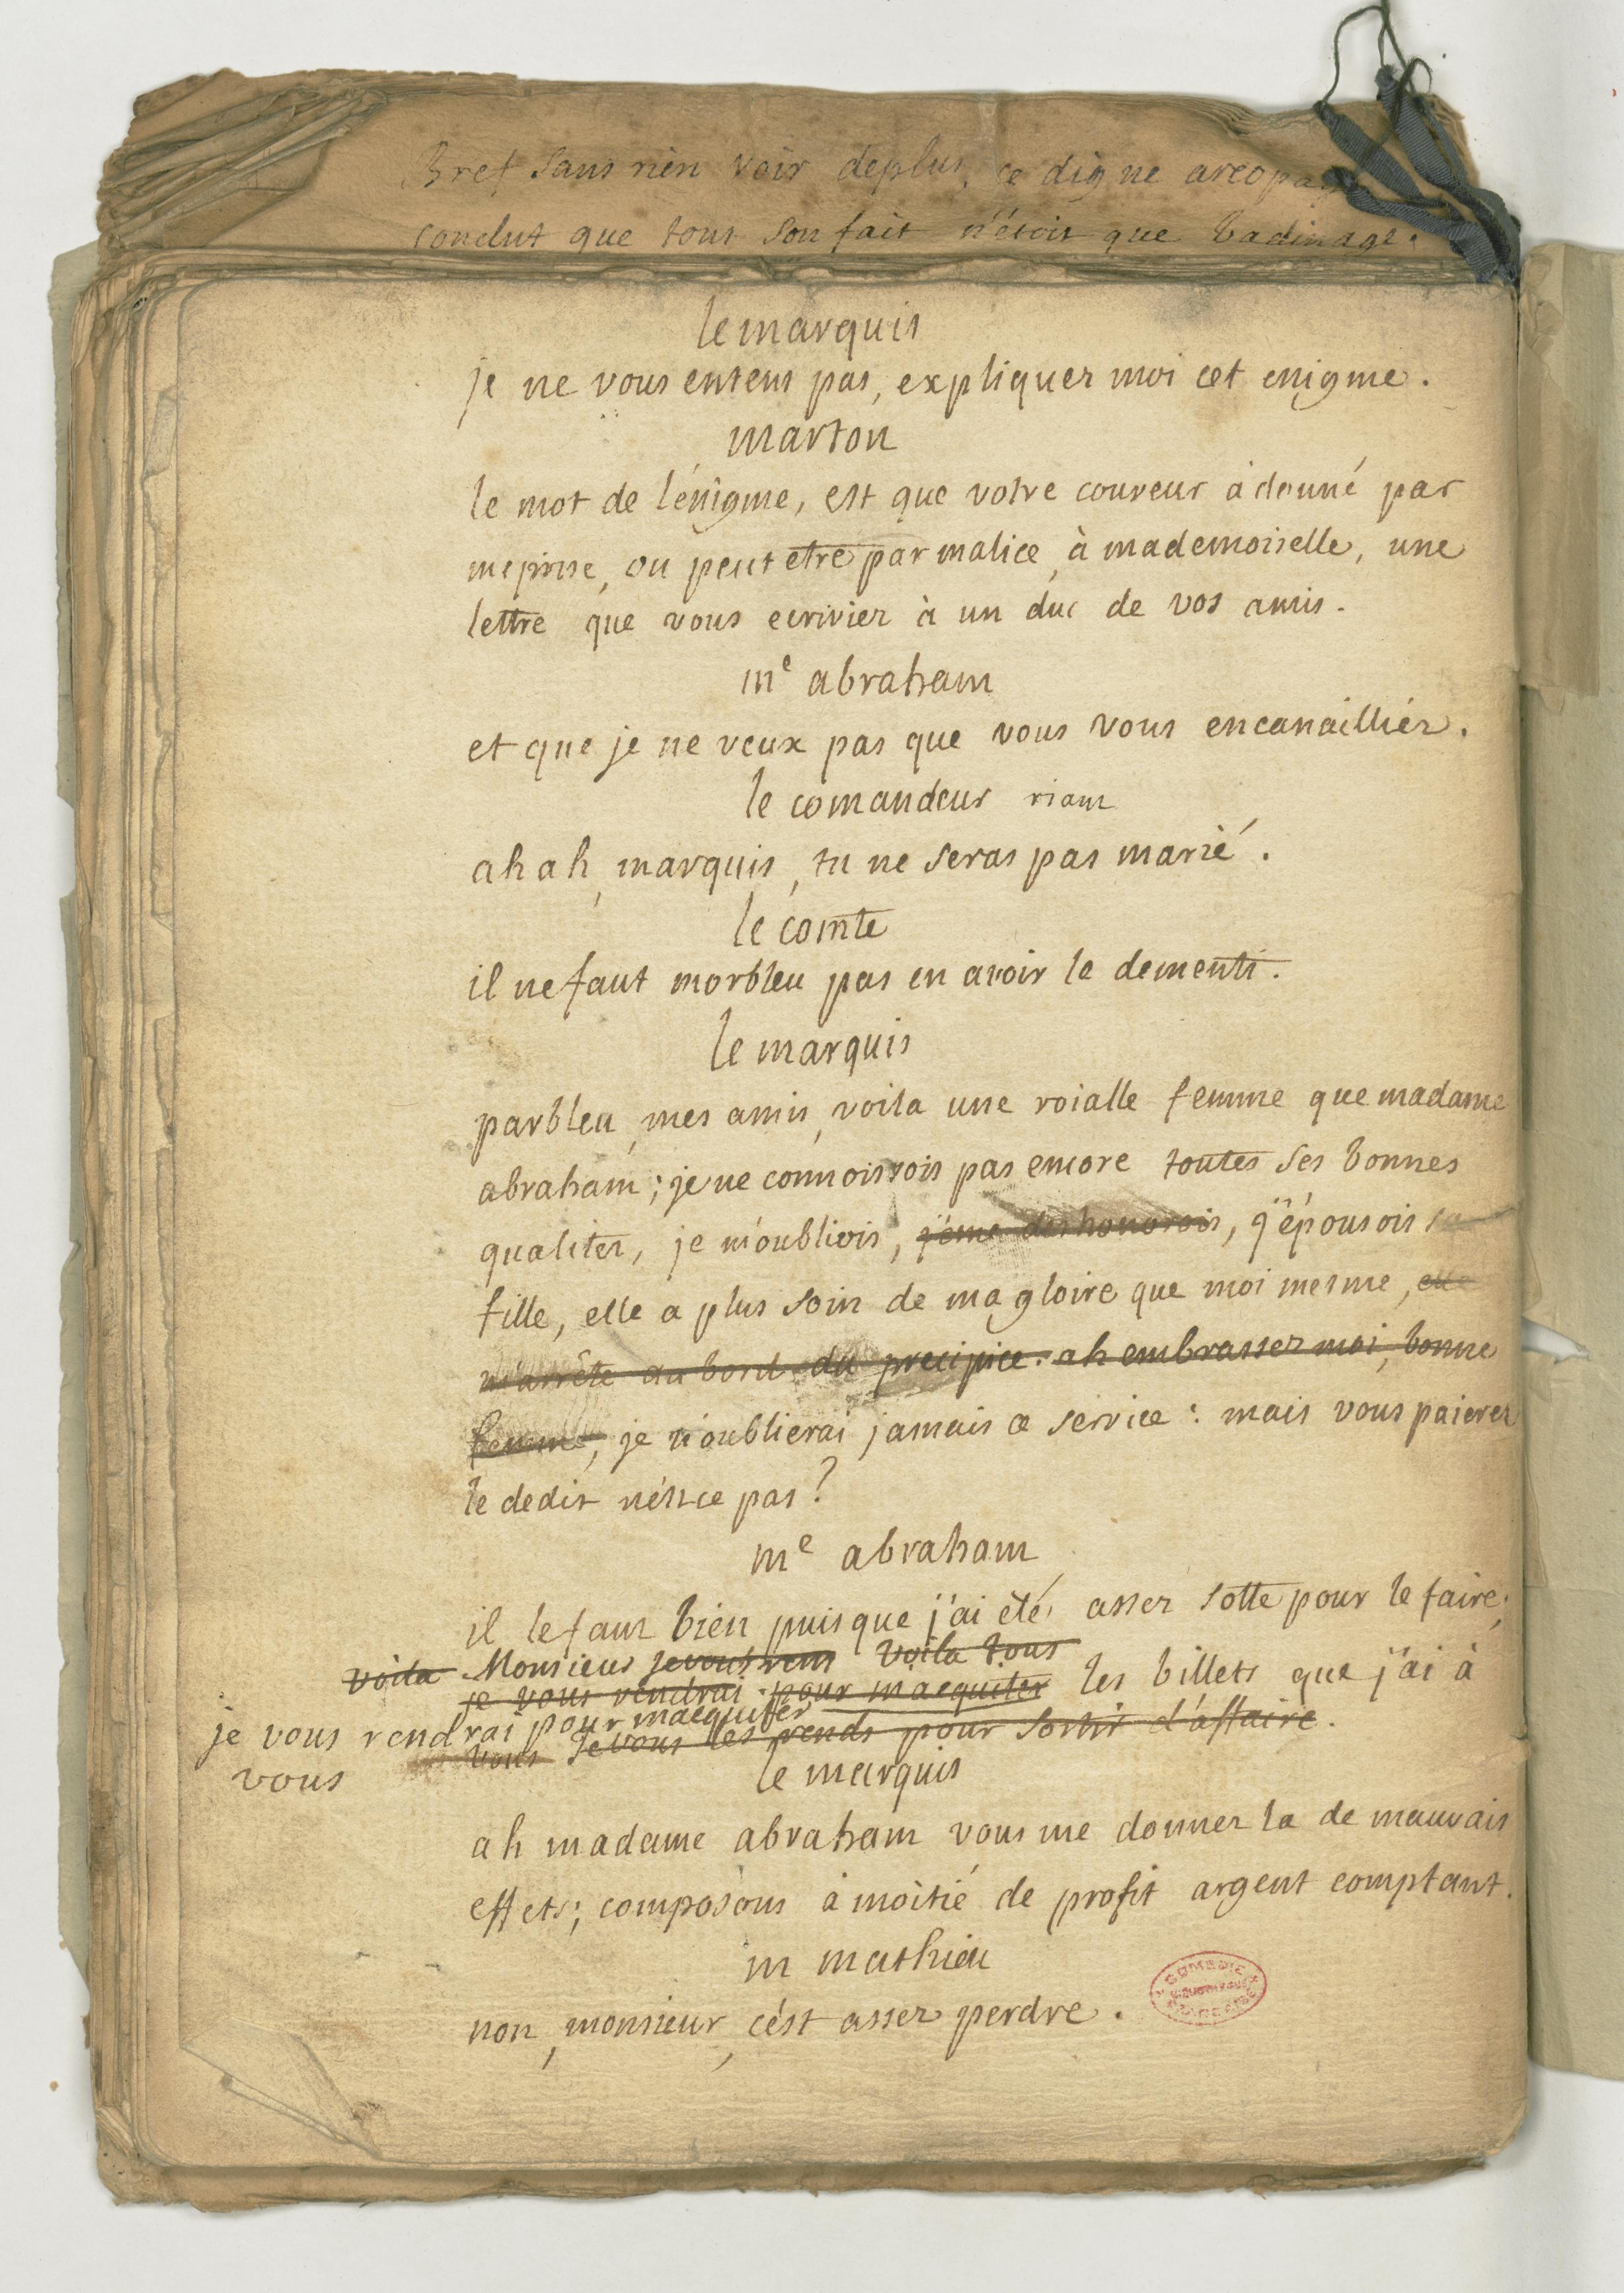 Bref sans rien voir deplus, ce digne areopage
conclut que tout son fait n'étoit que badinage.
le marquis
je ne vous entens pas, expliquez moi cet enigme.
marton
le mot de l'énigme, est que votre coureur à donné par
meprise, ou peut etre par malice, à mademoiselle, une
lettre que vous ecriviez à un duc de vos amis.
me abraham
et que je ne veux pas que vous vous encanailliéz.
le comandeur riant
ah ah, marquis, tu ne seras pas marié.
le comte
il ne faut morbleu pas en avoir le dementi.
le marquis
parbleu, mes amis, voila une roialle femme que madame
abraham; je ne connoissois pas encore toutes ses bonnes
qualitez, je m'oubliois, je me deshonorois, j'épousois sa
fille, elle a plus soin de ma gloire que moi mesme, elle
m'arrête au bord du precipice. ah embrassez moi, bonne
femme, je n'oublierai jamais ce service: mais vous paierez
le dedit n'est-ce pas?
me abraham
il le faut bien puisque j'ai été assez sotte pour le faire;
voila Monsieur je vous rens voila tous
je vous rendrai pour m'acquiter les billets que j'ai à
je vous rendrai pour m'acquitter
vous je vous les rends pour sortir d'affaire.
vous
le marquis
ah madame abraham vous me donnez la de mauvais
effets; composons à moitié de profit argent comptant.
m mathieu
non, monsieur, c'est assez perdre.
COMEDIE FRANCAISE